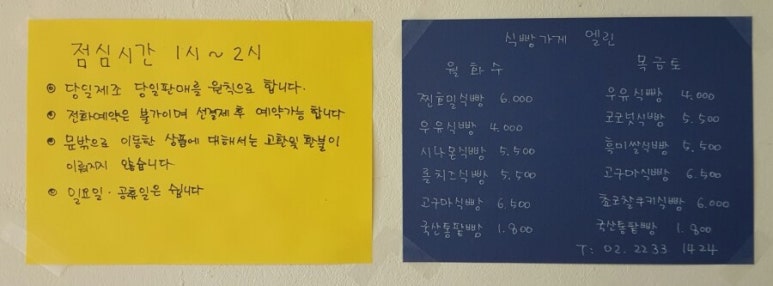 점심시간 1시~2시
◉ 당일제조 당일판매를 원칙으로 합니다.
◉ 전화예약은 불가이며 선결제 후 예약가능 합니다
◉ 문밖으로 이동한 상품에 대해서는 교환및 환불이
이뤄지지 않습니다
◉ 일요일·공휴일은 쉽니다
식빵가게 멜린
월 화 수
찐호밀식빵 6.000
우유식빵 4.000
시나몬식빵 5.500
롤치즈식빵 5.500
고구마식빵 6.500
국산통팥빵 1.800
목금토
우유식빵 4.000
코코넛식빵 5.500
흑미쌀식빵 5.500
고구마식빵 6.500
쵸코찰쿠키식빵 6.000
국산통팥빵 1.800
T: 02. 2233 1424